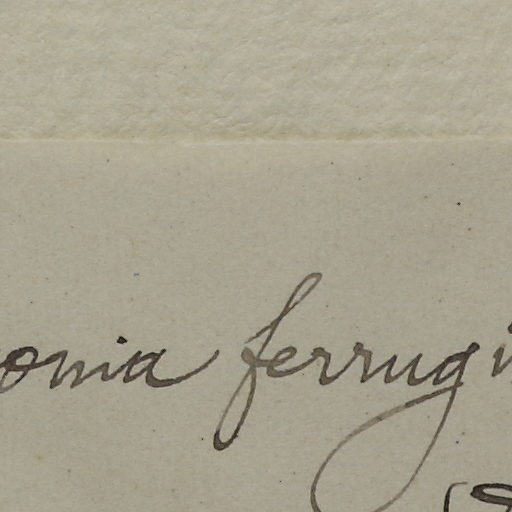 onia ferrugi